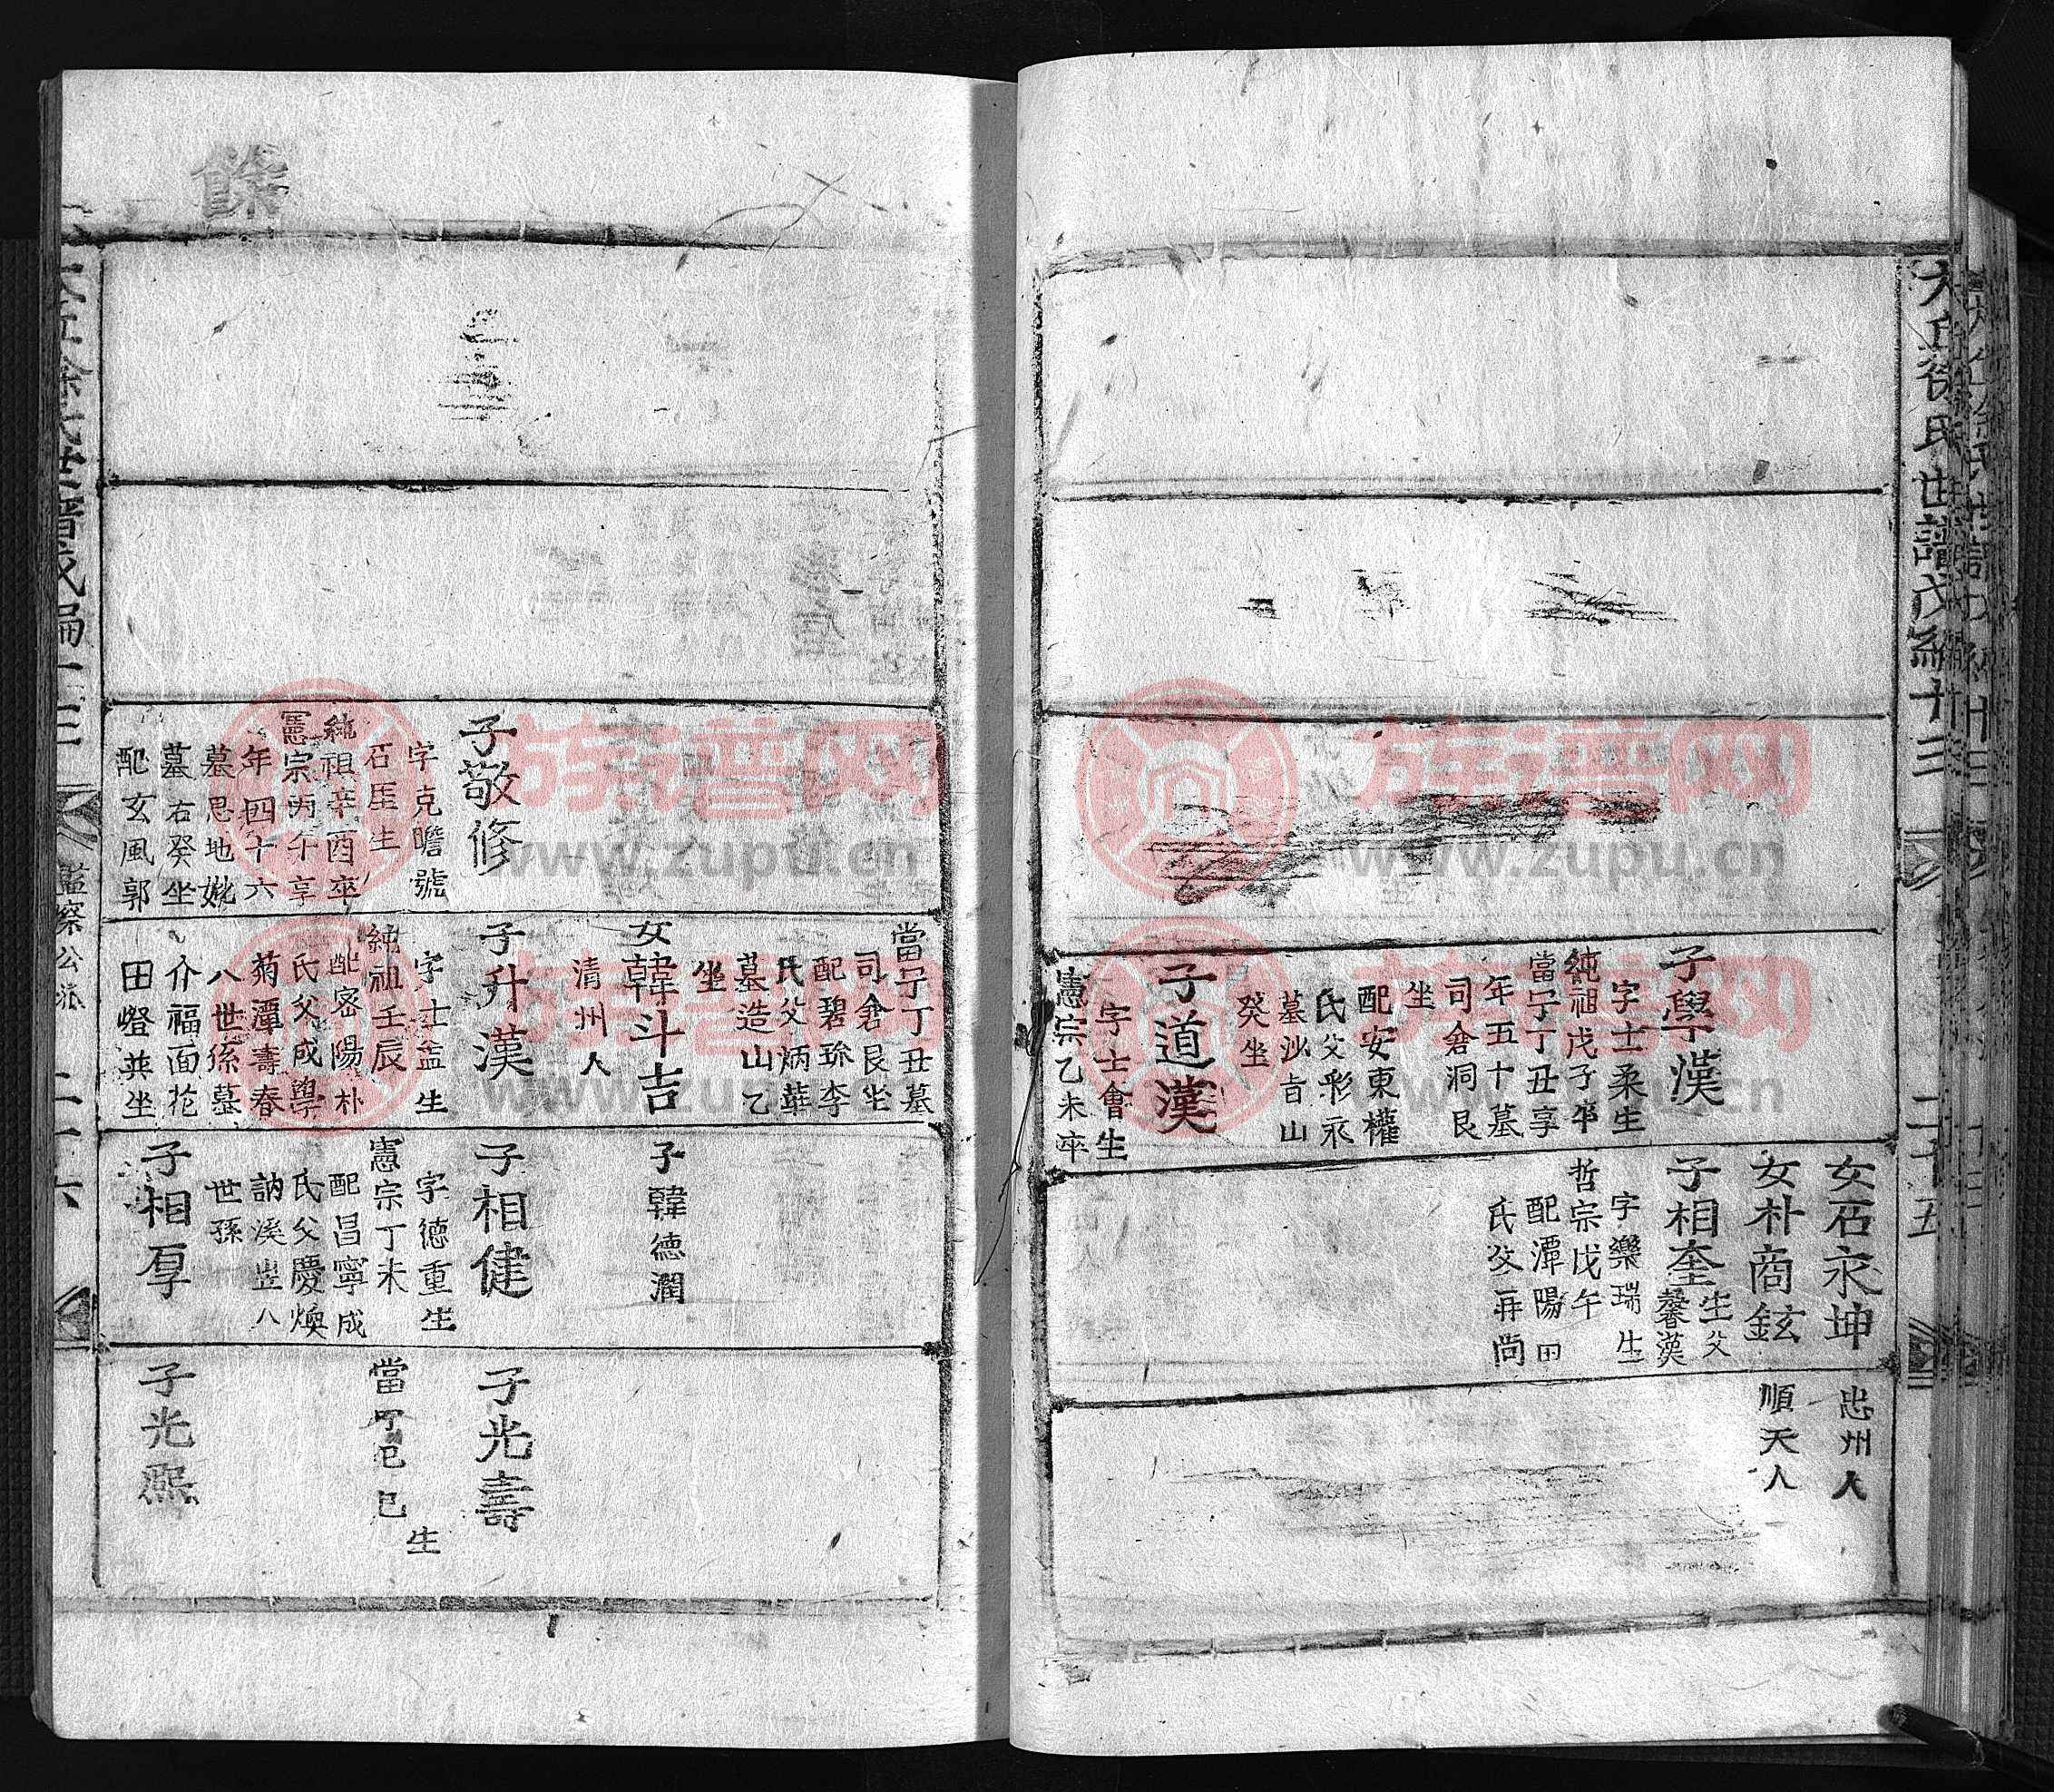 大丘徐氏世譜戊編十三
二十五
子學漢
字士柔生
純祖戊子卒
當宁丁丑享
年五十墓
司倉洞艮
坐
配安東權
氏父彩永
墓沙旨山
癸坐
子道漢
字士會生
憲宗乙未卒
女石永坤
女朴商鉉
子相奎
生父
馨漢
字樂瑞生
哲宗戊午
配潭陽田
氏父再尚
忠州人
順天人
餘
子敬修
字克瞻號
石厓生
純祖辛酉卒
憲宗丙午享
年四十六
墓思地妣
墓右癸坐
配玄風郭
當宁丁丑墓
司倉艮坐
配碧珍李
氏父炳華
墓造山乙
坐
女韓斗吉
清州人
子升漢
字士益生
純祖壬辰
配密陽朴
氏父成學
菊潭壽春
八世孫墓
介福面花
田嶝英坐
子韓德潤
子相健
字德重生
憲宗丁未
配昌寧成
氏父慶煥
訥溪豈八
世孫
子相厚
子光壽
當宁
巳
生
子光熙
大丘徐氏世譜戊編十三
監察公派
二十六
族谱网
www.zupu.cn
族谱网
www.zupu.cn
族谱网
www.zupu.cn
族谱网
www.zupu.cn